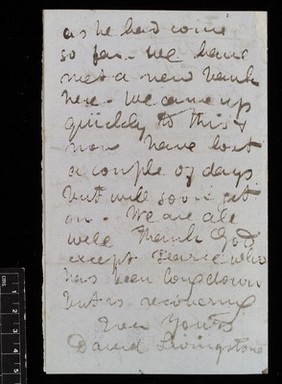 as he had come
so far - we have
met a new bank
here - We came up
quickly to this &
now have lost
a couple of days
but will soon get
on - We are all
well thank God
except who
has been long down
but is recovering
Ever Yours
David Livingstone
cms 1 2 3 4 5